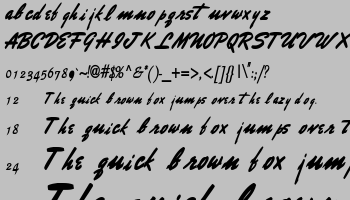 abcdefghijklmnopqrstuvwxyz
ABCDEFGHIJKLMNOPQRSTUVWX
0123456789`~!@#$%^&*()-_+=>,<.[]{}|\":;/?
12 The quick brown fox jumps over the lazy dog.
18 The quick brown fox jumps over t
24 The quick brown fox jump